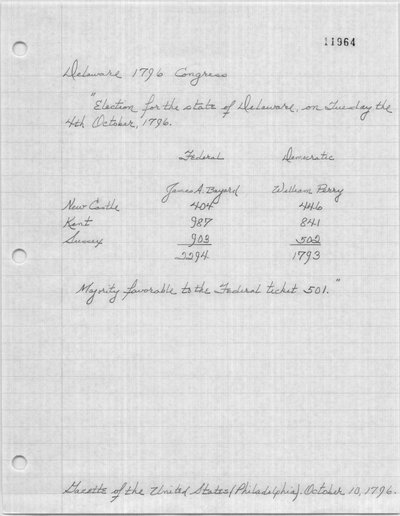 11964
Delaware 1796 Congress
"Election for the state of Delaware, on Tuesday the
4th October, 1796.
Federal Democratic
James A. Bayard William Perry
New Castle 404 446
Kent 987 841
Sussex 903 502
2294 1793
Majority favorable to the Federal ticket 501."
Gazette of the United States (Philadelphia). October 10, 1796.